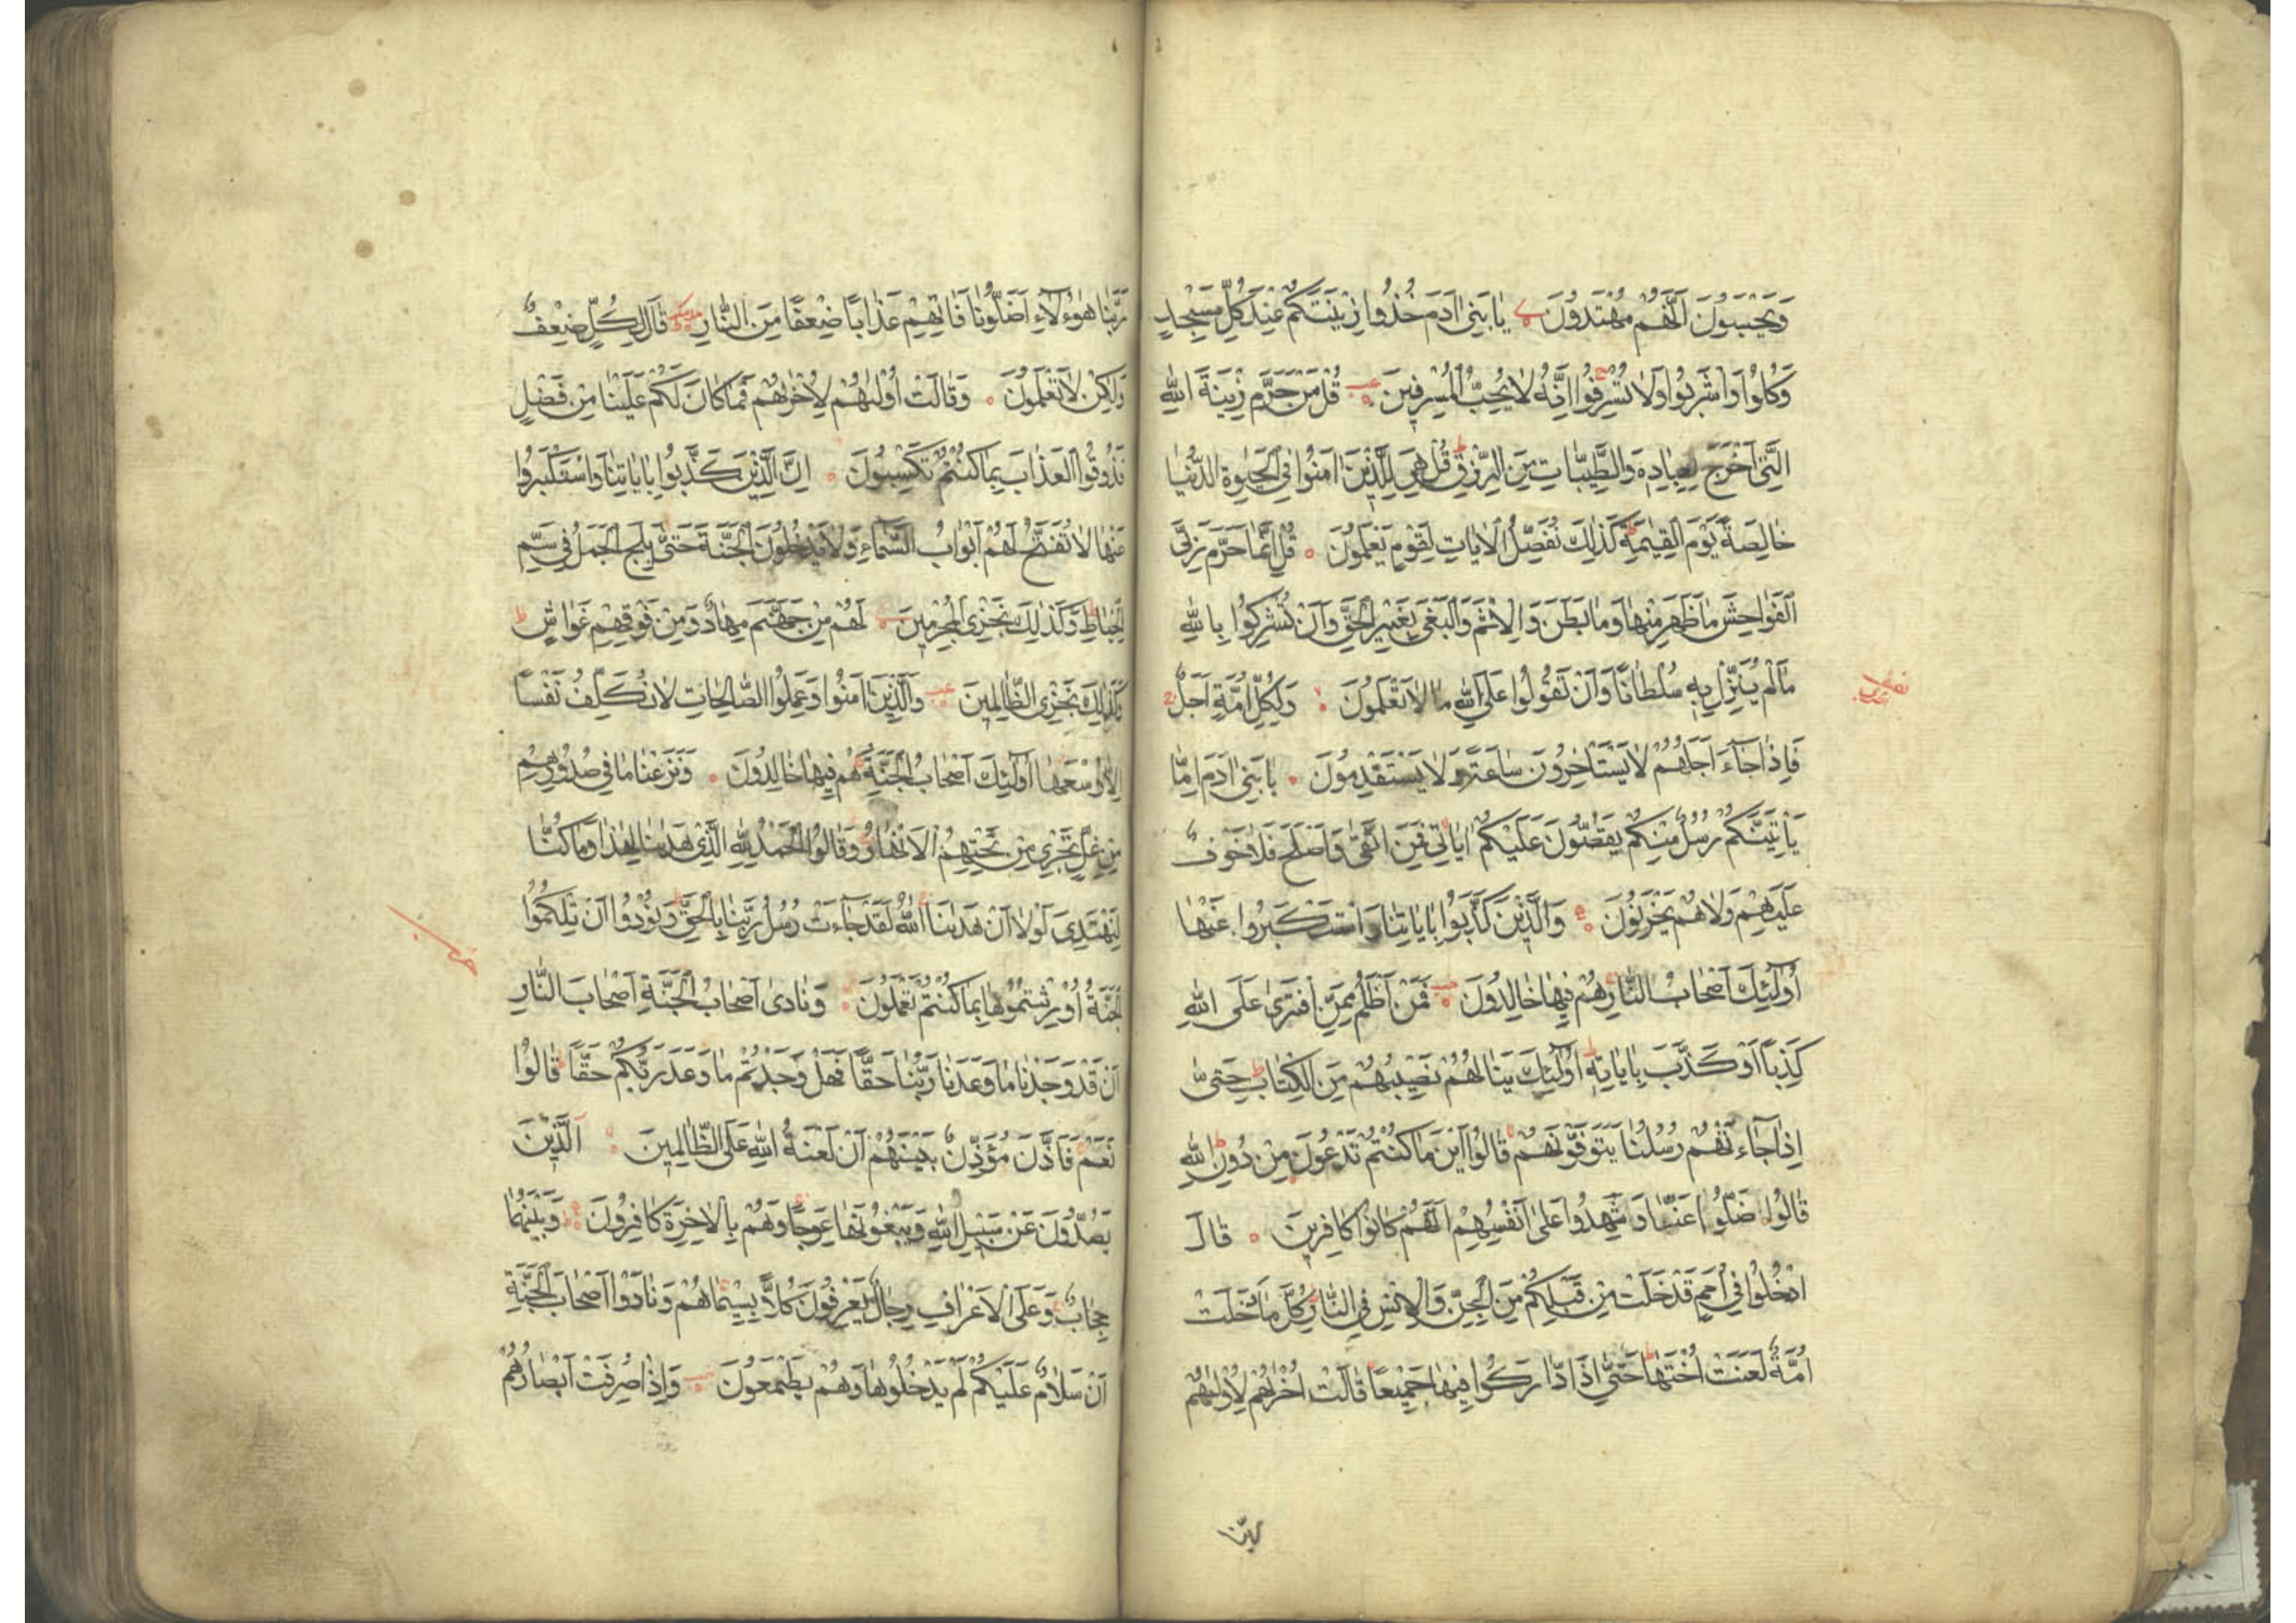 وَيَحْسَبُونَ اَنَّهُمْ مُهْتَدُونَ يَا بَنِي اٰدَمَ خُذُوا زِينَتَكُمْ عِنْدَ كُلِّ مَسْجِدٍ
وَكُلُوا وَاشْرَبُوا وَلَا تُسْرِفُوا اِنَّهُ لَا يُحِبُّ الْمُسْرِفِينَ قُلْ مَنْ حَرَّمَ زِينَةَ اللّٰهِ
الَّتِي اَخْرَجَ لِعِبَادِهِ وَالطَّيِّبَاتِ مِنَ الرِّزْقِ قُلْ هِيَ لِلَّذِينَ اٰمَنُوا فِي الْحَيٰوةِ الدُّنْيَا
خَالِصَةً يَوْمَ الْقِيٰمَةِ كَذٰلِكَ نُفَصِّلُ الْاٰيَاتِ لِقَوْمٍ يَعْلَمُونَ ۝ قُلْ اِنَّمَا حَرَّمَ رَبِّيَ
الْفَوَاحِشَ مَا ظَهَرَ مِنْهَا وَمَا بَطَنَ وَالْاِثْمَ وَالْبَغْيَ بِغَيْرِ الْحَقِّ وَاَنْ تُشْرِكُوا بِاللّٰهِ
مَا لَمْ يُنَزِّلْ بِهِ سُلْطَانًا وَاَنْ تَقُولُوا عَلَى اللّٰهِ مَا لَا تَعْلَمُونَ ۝ وَلِكُلِّ اُمَّةٍ اَجَلٌ
فَاِذَا جَاءَ اَجَلُهُمْ لَا يَسْتَاْخِرُونَ سَاعَةً وَلَا يَسْتَقْدِمُونَ ۝ يَا بَنِي اٰدَمَ اِمَّا
يَاْتِيَنَّكُمْ رُسُلٌ مِنْكُمْ يَقُصُّونَ عَلَيْكُمْ اٰيَاتِي فَمَنِ اتَّقٰى وَاَصْلَحَ فَلَا خَوْفٌ
عَلَيْهِمْ وَلَا هُمْ يَحْزَنُونَ ۝ وَالَّذِينَ كَذَّبُوا بِاٰيَاتِنَا وَاسْتَكْبَرُوا عَنْهَا
اُولٰئِكَ اَصْحَابُ النَّارِ هُمْ فِيهَا خَالِدُونَ ۝ فَمَنْ اَظْلَمُ مِمَّنِ افْتَرٰى عَلَى اللّٰهِ
كَذِبًا اَوْ كَذَّبَ بِاٰيَاتِهِ اُولٰئِكَ يَنَالُهُمْ نَصِيبُهُمْ مِنَ الْكِتَابِ حَتّٰى
اِذَا جَاءَتْهُمْ رُسُلُنَا يَتَوَفَّوْنَهُمْ قَالُوا اَيْنَ مَا كُنْتُمْ تَدْعُونَ مِنْ دُونِ اللّٰهِ
قَالُوا ضَلُّوا عَنَّا وَشَهِدُوا عَلٰى اَنْفُسِهِمْ اَنَّهُمْ كَانُوا كَافِرِينَ ۝ قَالَ
ادْخُلُوا فِي اُمَمٍ قَدْ خَلَتْ مِنْ قَبْلِكُمْ مِنَ الْجِنِّ وَالْاِنْسِ فِي النَّارِ كُلَّمَا دَخَلَتْ
اُمَّةٌ لَعَنَتْ اُخْتَهَا حَتّٰى اِذَا ادَّارَكُوا فِيهَا جَمِيعًا قَالَتْ اُخْرٰىهُمْ لِاُولٰىهُمْ
ربّنا
نصف
رَبَّنَا هٰؤُلَاءِ اَضَلُّونَا فَاٰتِهِمْ عَذَابًا ضِعْفًا مِنَ النَّارِ قَالَ لِكُلٍّ ضِعْفٌ
وَلٰكِنْ لَا تَعْلَمُونَ ۝ وَقَالَتْ اُولٰىهُمْ لِاُخْرٰىهُمْ فَمَا كَانَ لَكُمْ عَلَيْنَا مِنْ فَضْلٍ
فَذُوقُوا الْعَذَابَ بِمَا كُنْتُمْ تَكْسِبُونَ ۝ اِنَّ الَّذِينَ كَذَّبُوا بِاٰيَاتِنَا وَاسْتَكْبَرُوا
عَنْهَا لَا تُفَتَّحُ لَهُمْ اَبْوَابُ السَّمَاءِ وَلَا يَدْخُلُونَ الْجَنَّةَ حَتّٰى يَلِجَ الْجَمَلُ فِي سَمِّ
الْخِيَاطِ وَكَذٰلِكَ نَجْزِي الْمُجْرِمِينَ لَهُمْ مِنْ جَهَنَّمَ مِهَادٌ وَمِنْ فَوْقِهِمْ غَوَاشٍ
وَكَذٰلِكَ نَجْزِي الظَّالِمِينَ وَالَّذِينَ اٰمَنُوا وَعَمِلُوا الصَّالِحَاتِ لَا نُكَلِّفُ نَفْسًا
اِلَّا وُسْعَهَا اُولٰئِكَ اَصْحَابُ الْجَنَّةِ هُمْ فِيهَا خَالِدُونَ ۝ وَنَزَعْنَا مَا فِي صُدُورِهِمْ
مِنْ غِلٍّ تَجْرِي مِنْ تَحْتِهِمُ الْاَنْهَارُ وَقَالُوا الْحَمْدُ لِلّٰهِ الَّذِي هَدٰىنَا لِهٰذَا وَمَا كُنَّا
لِنَهْتَدِيَ لَوْلَا اَنْ هَدٰىنَا اللّٰهُ لَقَدْ جَاءَتْ رُسُلُ رَبِّنَا بِالْحَقِّ وَنُودُوا اَنْ تِلْكُمُ
الْجَنَّةُ اُورِثْتُمُوهَا بِمَا كُنْتُمْ تَعْمَلُونَ ۝ وَنَادٰى اَصْحَابُ الْجَنَّةِ اَصْحَابَ النَّارِ
اَنْ قَدْ وَجَدْنَا مَا وَعَدَنَا رَبُّنَا حَقًّا فَهَلْ وَجَدْتُمْ مَا وَعَدَ رَبُّكُمْ حَقًّا قَالُوا
نَعَمْ فَاَذَّنَ مُؤَذِّنٌ بَيْنَهُمْ اَنْ لَعْنَةُ اللّٰهِ عَلَى الظَّالِمِينَ ۝ اَلَّذِينَ
يَصُدُّونَ عَنْ سَبِيلِ اللّٰهِ وَيَبْغُونَهَا عِوَجًا وَهُمْ بِالْاٰخِرَةِ كَافِرُونَ ۝ وَبَيْنَهُمَا
حِجَابٌ وَعَلَى الْاَعْرَافِ رِجَالٌ يَعْرِفُونَ كُلًّا بِسِيمَاهُمْ وَنَادَوْا اَصْحَابَ الْجَنَّةِ
اَنْ سَلَامٌ عَلَيْكُمْ لَمْ يَدْخُلُوهَا وَهُمْ يَطْمَعُونَ وَاِذَا صُرِفَتْ اَبْصَارُهُمْ